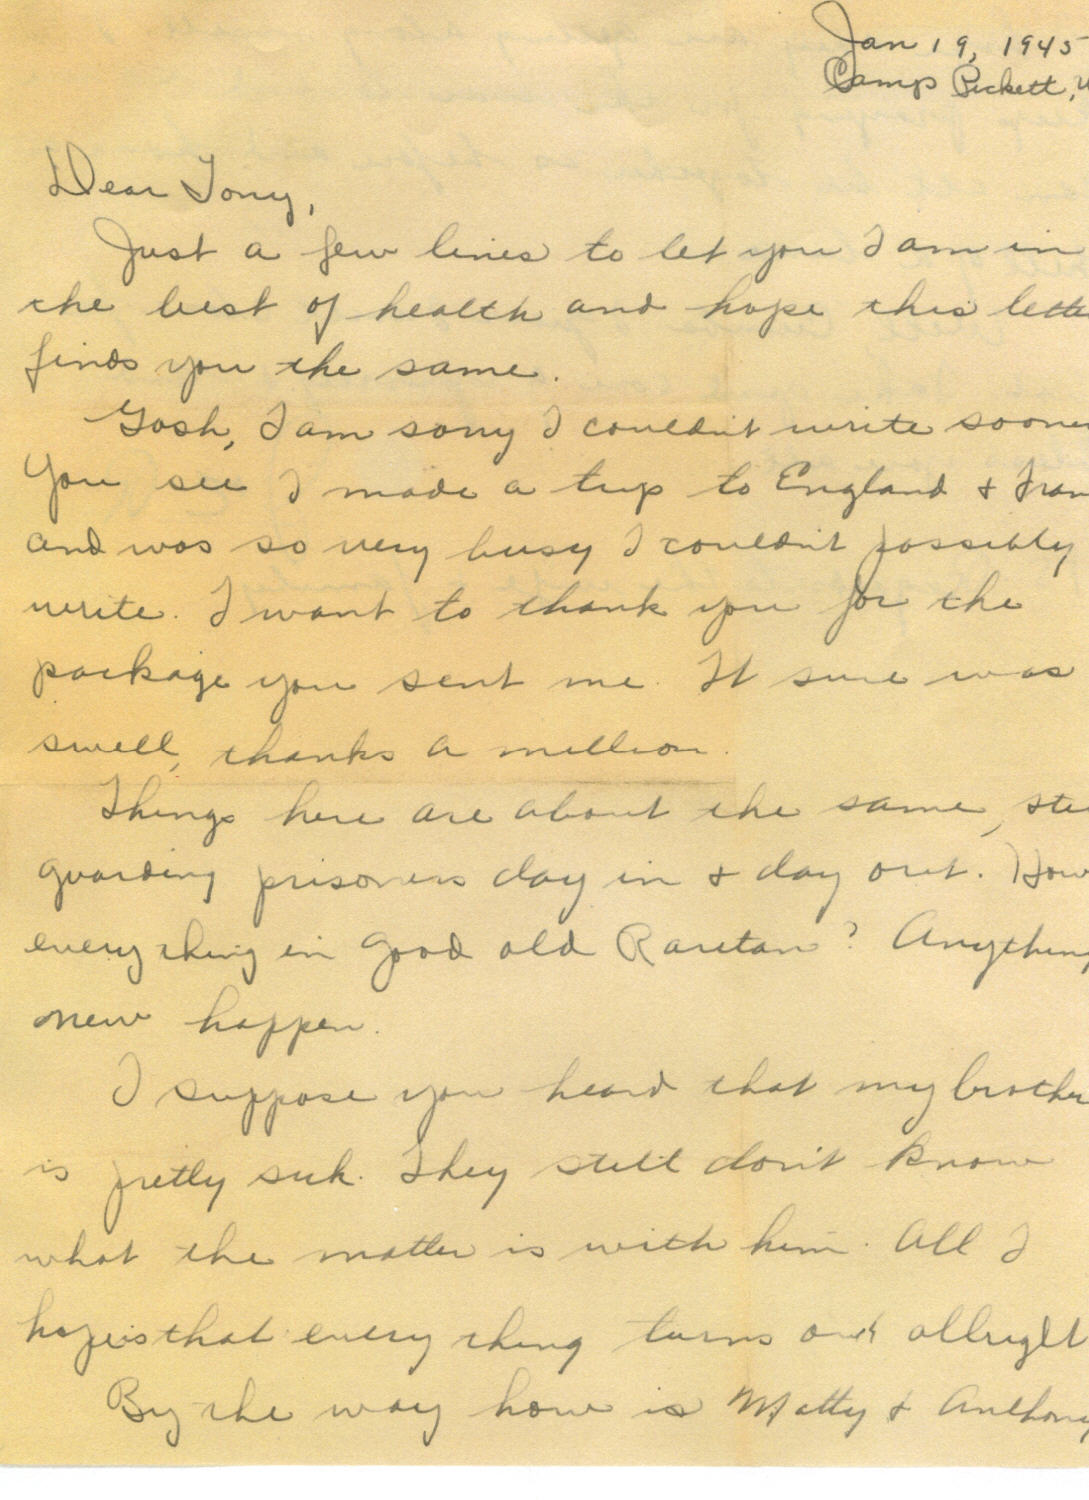 Jan 19, 1945
Camp Pickett,
Dear Tony,
Just a few lines to let you I am in
the best of health and hope this lette
finds you the same.
Gosh, I am sorry I couldn't write soone
You see I made a trip to England & Fran
and was so very busy I couldn't possibly
write. I want to thank you for the
package you sent me. It sure was
swell, thanks a million.
Things here are about the same, sti
guarding prisoners day in & day out. How
every thing in good old Raritan? Anythin
new happen.
I suppose you heard that my brothe
is pretty sick. They still don't know
what the matter is with him. All I
hope is that every thing turns out allright
By the way how is Matty & Anthony